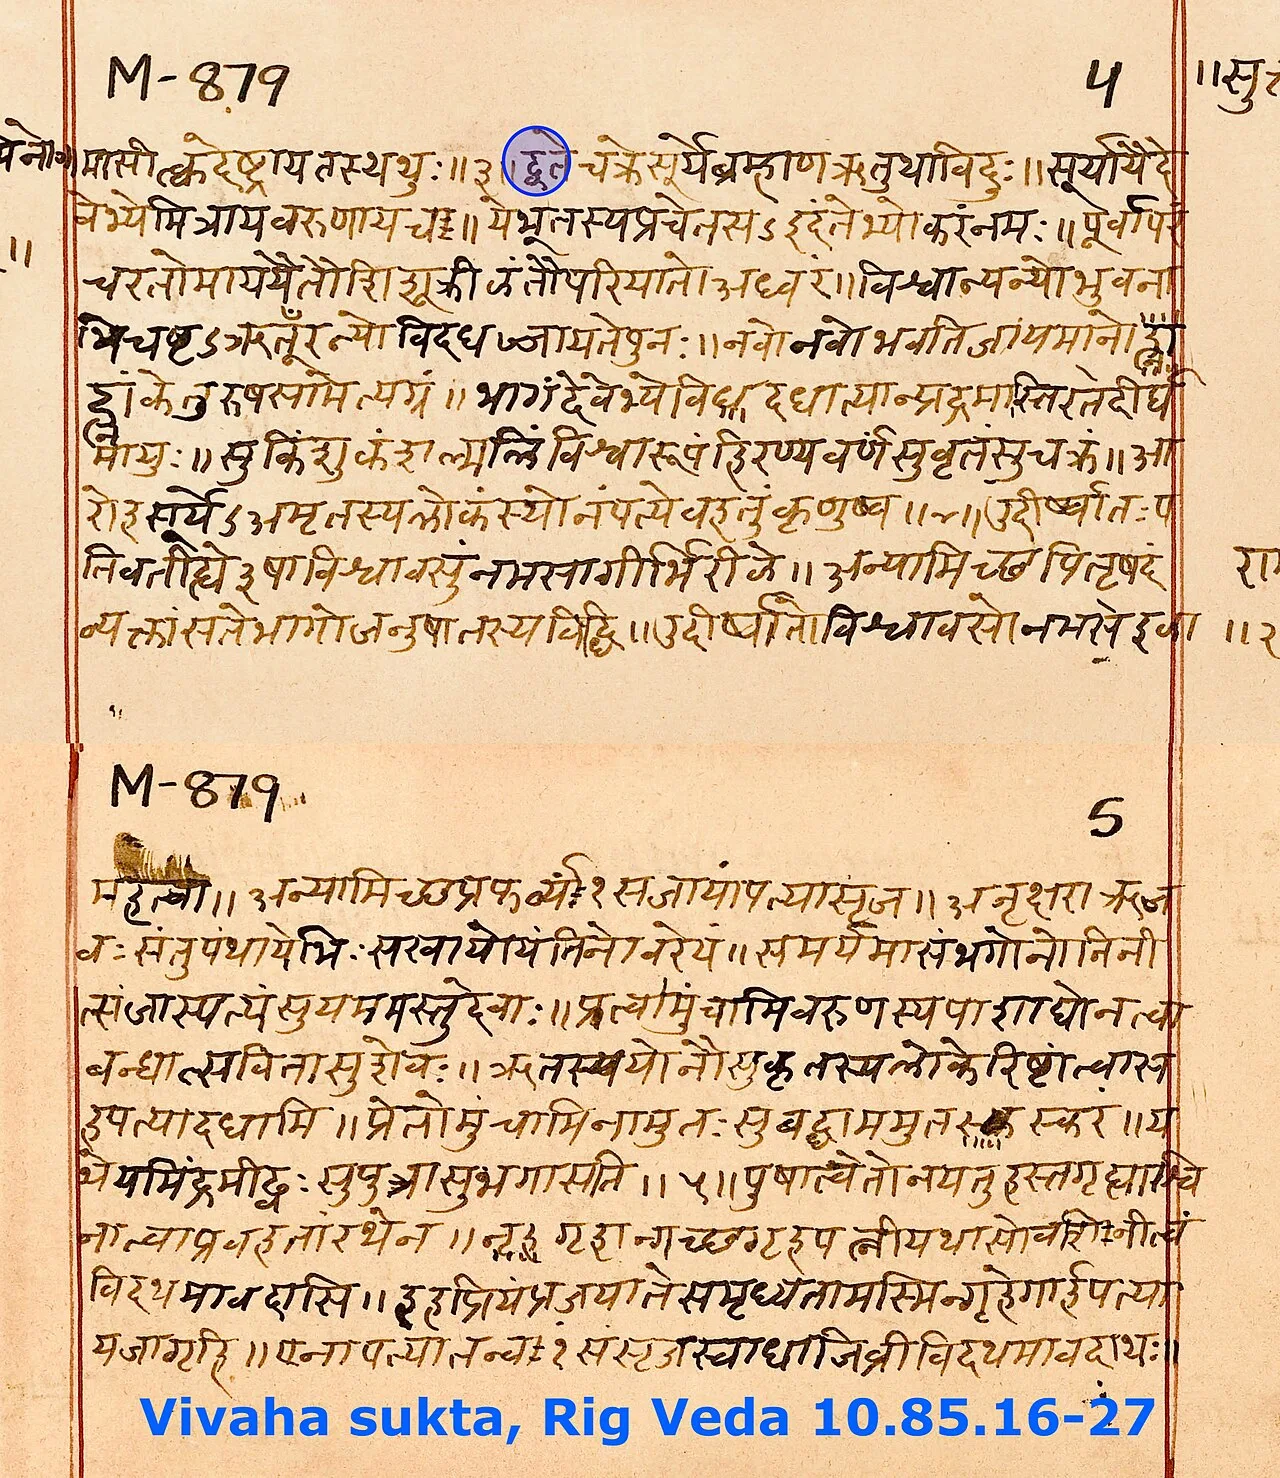 M-879
4
॥सु
मासीत्क्वदेष्ट्रायतस्थथुः॥३॥द्वेते चक्रेसूर्येब्रम्हाणऋतुथाविदुः॥सूर्यायैदे
वेभ्येमित्रायवरुणायच॥येभूतस्यप्रचेतसऽइदंतेभ्योकरंनमः॥पूर्वापरं
॥
चरतोमाययैतौशिशूक्रीळंतौपरियातोअध्वरं॥विश्वान्यन्योभुवना
भिचष्टऽऋतूँरन्योविदधज्जायतेपुनः॥नवोनवोभवतिजायमानो
ह्नांकेतुरुषसामेत्यग्रं॥भागंदेवेभ्योविदधात्यान्प्रचंद्रमास्तिरतेदीर्घ
मायुः॥सुकिंशुकंशल्मलिंविश्वारूपंहिरण्यवर्णंसुवृतंसुचक्रं॥आ
रोहसूर्येऽअमृतस्यलोकंस्योनंपत्येवहतुंकृणुष्व॥४॥उदीर्ष्वातःप
तिवतीह्ये३षाविश्वावसुंनमसागीर्भिरीळे॥अन्यामिच्छपितृषदं
व्यक्तांसतेभागोजनुषातस्यविद्धि॥उदीर्ष्वातोविश्वावसोनमसेळा
॥२
M-879
5
महत्वा॥अन्यामिच्छप्रफर्व्यं१सजायांपत्यासृज॥अनृक्षराऋज
वःसंतुपंथायेभिःसखायोयंतिनोवरेयं॥समर्यमासंभगोनोनिनी
त्संजास्पत्यंसुयममस्तुदेवाः॥प्रत्वामुंचामिवरुणस्यपाशाद्येनत्वा
बन्धात्सवितासुशेवः॥ऋतस्ययोनौसुकृतस्यलोकेरिष्टांत्वास
हपत्यादधामि॥प्रेतोमुंचामिनामुतःसुबद्धाममुतस्करं॥य
थेयमिंद्रमीढ्वःसुपुत्रासुभगासति॥५॥पुषात्वेतोनयतुहस्तगृह्याश्वि
नात्वाप्रवहतांरथेन॥गृहान्गच्छगृहपत्नीयथासोवशिनीत्वं
विदथमावदासि॥इहप्रियंप्रजयातेसमृध्यतामस्मिन्गृहेगार्हपत्या
यजागृहि॥एनापत्यातन्वं१संसृजस्वाधाजिव्रीविदथमावदाथः॥
Vivaha sukta, Rig Veda 10.85.16-27